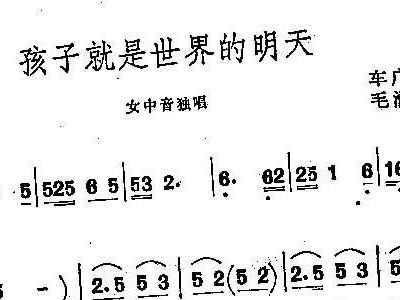 孩子就是世界的明天
女中音独唱
车
毛
5 | 525 6 5 | 53 2· | 6· 62 | 25 1 6 | 16
5 - ) | 2.5 5 3 | 5 2 ( 5 2 ) | 2.5 5 3 | 5